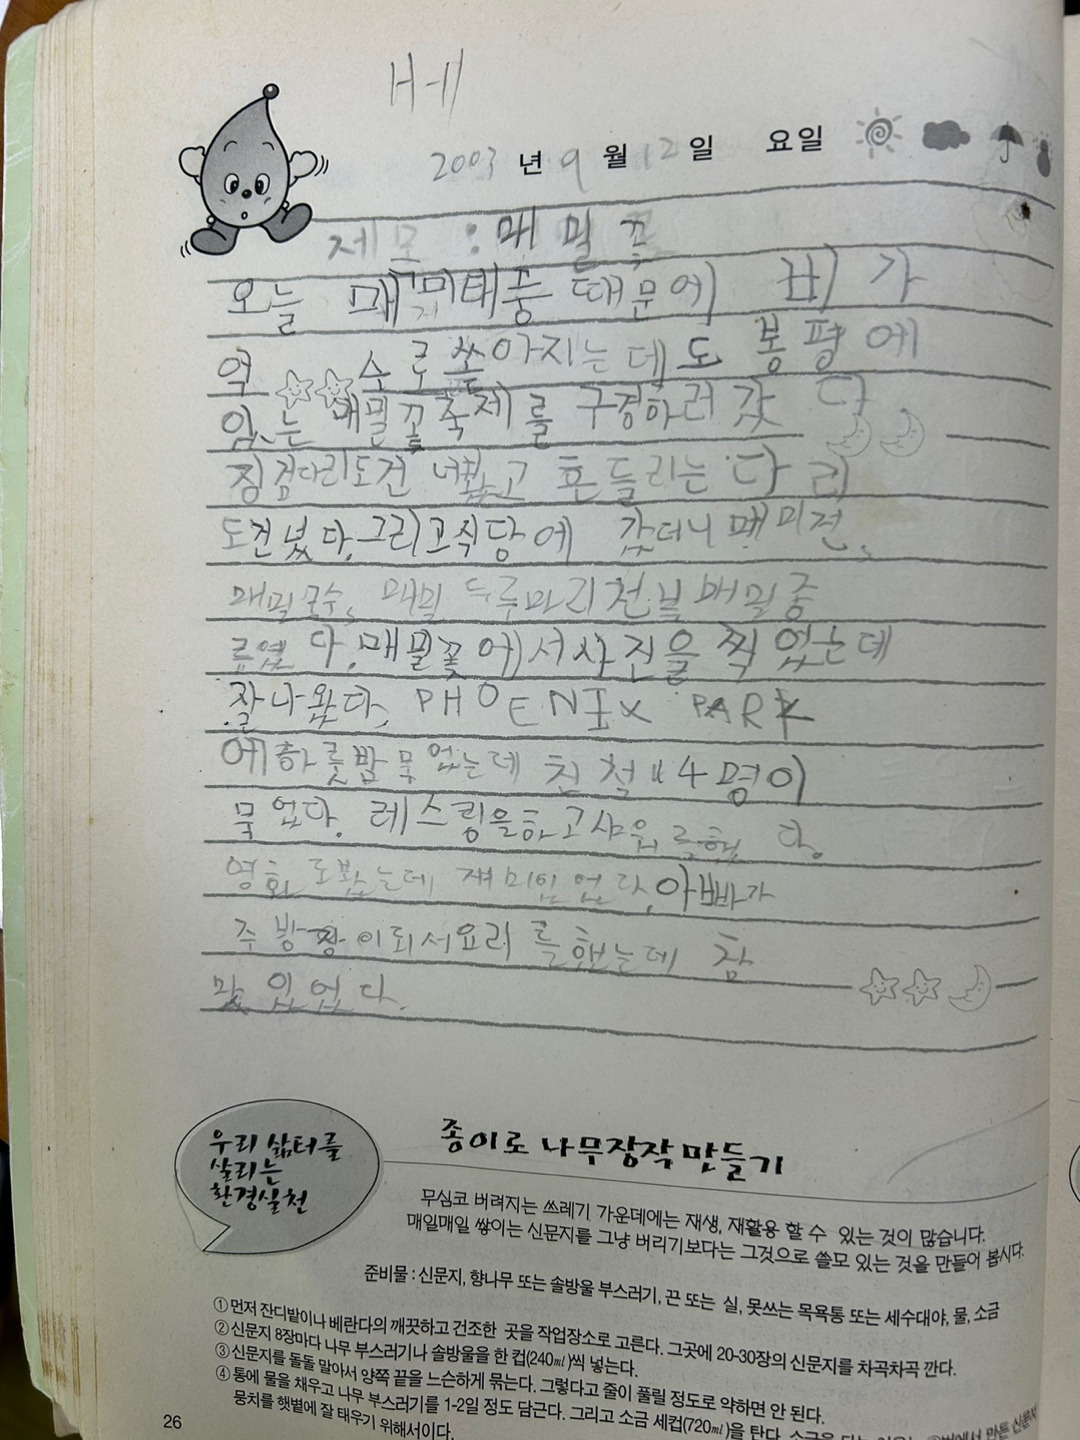 2003 년 9 월 12 일 요일
제목 : 매밀꽃
오늘 매미태풍 때문에 비가
억수로 쏟아지는데도 봉평에
있는 매밀꽃축제를 구경하러 갔다.
징검다리도건너봤고 흔들리는 다리
도건넜다.그리고식당에 갔더니 매미전,
매밀국수, 매밀 두루마리 전날 매밀종
류였다.매밀꽃에서사진을 찍었는데
잘나왔다. PHOENIX PARK
에하룻밤묵었는데 친척 14명이
묵었다. 레스링을하고샤워를했다.
영화도봤는데 재미있었다.아빠가
주방장이되서요리를했는데 참
맛있었다.
우리 삶터를
살리는
환경실천
종이로 나무장작 만들기
무심코 버려지는 쓰레기 가운데에는 재생, 재활용 할 수 있는 것이 많습니다.
매일매일 쌓이는 신문지를 그냥 버리기보다는 그것으로 쓸모 있는 것을 만들어 봅시다.
준비물 : 신문지, 향나무 또는 솔방울 부스러기, 끈 또는 실, 못쓰는 목욕통 또는 세수대야, 물, 소금
① 먼저 잔디밭이나 베란다의 깨끗하고 건조한 곳을 작업장소로 고른다. 그곳에 20-30장의 신문지를 차곡차곡 깐다.
② 신문지 8장마다 나무 부스러기나 솔방울을 한 컵(240㎖)씩 넣는다.
③ 신문지를 돌돌 말아서 양쪽 끝을 느슨하게 묶는다. 그렇다고 줄이 풀릴 정도로 약하면 안 된다.
④ 통에 물을 채우고 나무 부스러기를 1-2일 정도 담근다. 그리고 소금 세컵(720㎖)을 탄다.
뭉치를 햇볕에 잘 태우기 위해서이다.
26